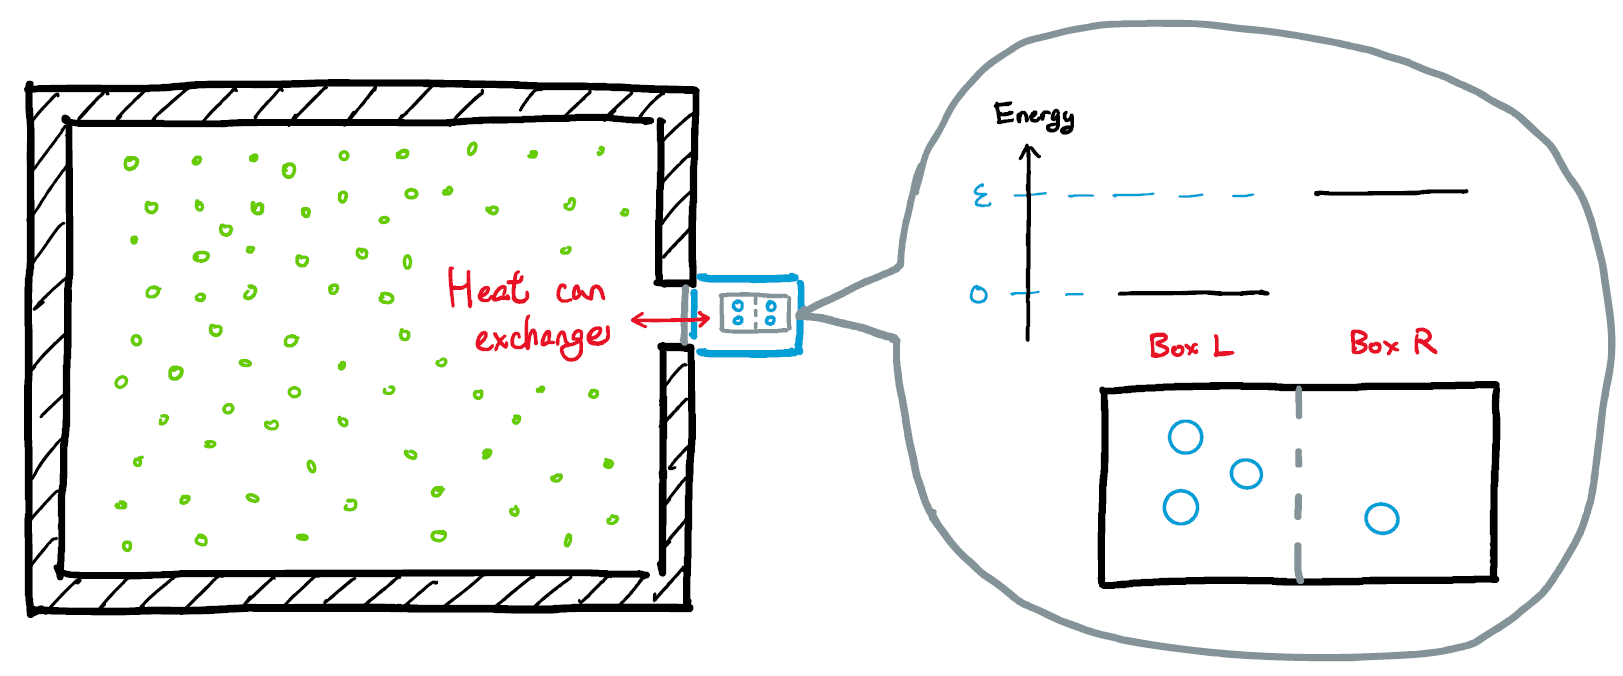 Heat can
exchange
Energy
ε
0
Box L
Box R